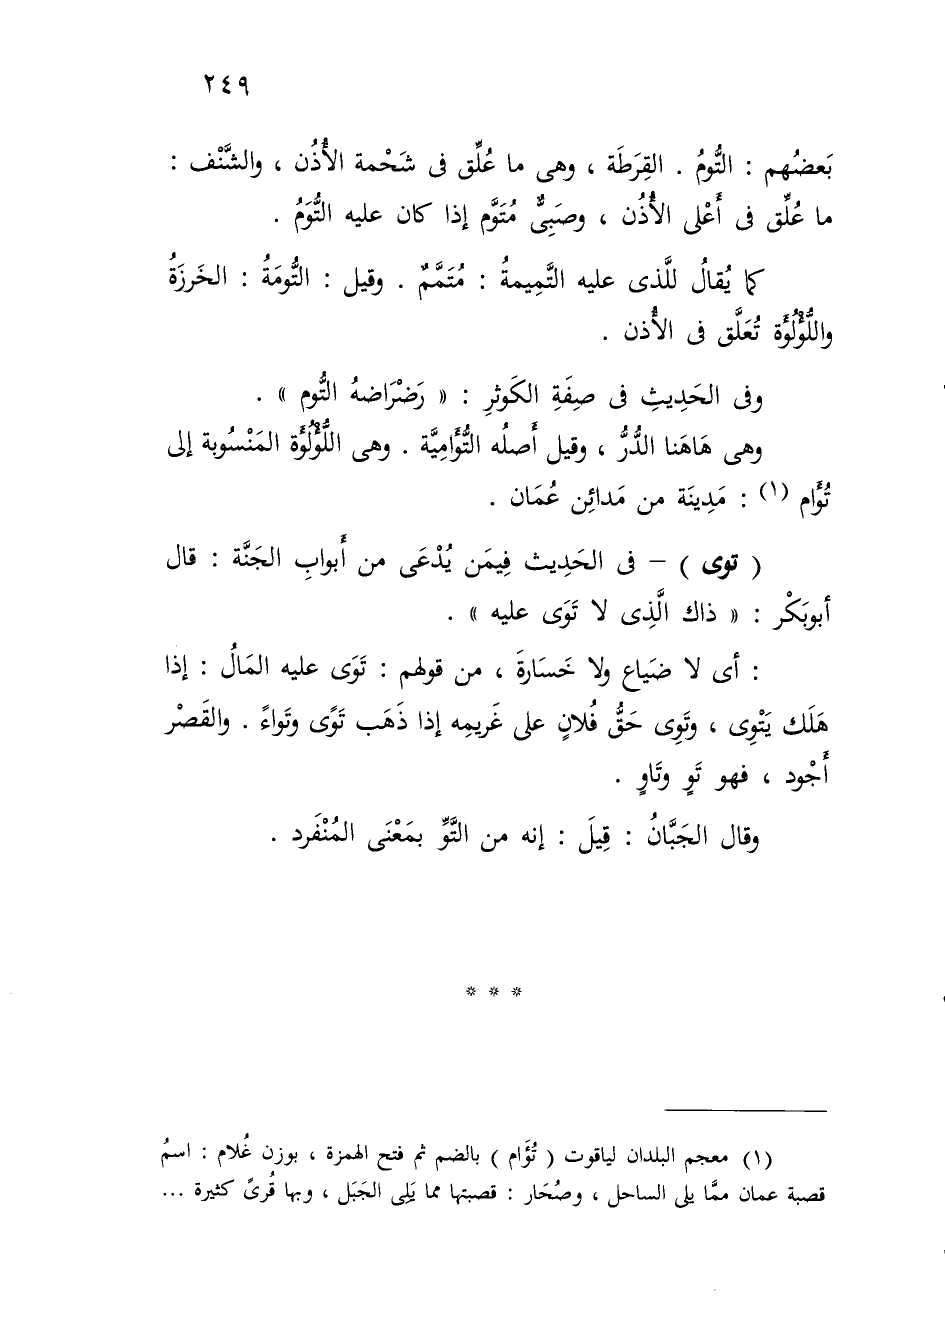 ٢٤٩
بَعضُهم : التُّومُ . القِرَطَة ، وهى ما عُلِّق فى شَحْمة الأُذُن ، والشَّنْف :
ما عُلِّق فى أَعْلى الأُذُن ، وصَبِىٌّ مُتَوَّم إذا كان عليه التُّوَمُ .
كما يُقالُ للَّذى عليه التَّمِيمةُ : مُتَمَّمٌ . وقيل : التُّومَةُ : الخَرزَةُ
واللُّؤْلُؤَة تُعَلَّق فى الأُذن .
وفى الحَدِيثِ فى صِفَةِ الكَوثرِ : « رَضْرَاضهُ التُّوم » .
وهى هَاهَنا الدُّرُّ ، وقيل أَصلُه التُّؤَامِيَّة . وهى اللُّؤْلُؤَة المَنْسُوبة إلى
تُؤَام (١) : مَدِينَة من مَدائِن عُمَان .
( توى ) – فى الحَدِيث فِيمَن يُدْعَى من أَبوابِ الجَنَّة : قال
أبوبَكْر : « ذاك الَّذِى لا تَوَى عليه » .
: أى لا ضَياع ولا خَسَارةَ ، من قولهم : تَوَى عليه المَالُ : إذا
هَلَك يَتْوِى ، وتَوِى حَقُّ فُلانٍ على غَريمِه إذا ذَهَب تَوًى وتَواءً . والقَصْر
أَجْود ، فهو تَوٍ وتَاوٍ .
وقال الجَبَّانُ : قِيلَ : إنه من التَّوِّ بمَعْنَى المُنْفَرد .
* * *
(١) معجم البلدان لياقوت ( تُؤَام ) بالضم ثم فتح الهمزة ، بوزن غُلام : اسمُ
قصبة عمان ممَّا يلى الساحل ، وصُحَار : قصبتها مما يَلِى الجَبَل ، وبها قُرىً كثيرة ...